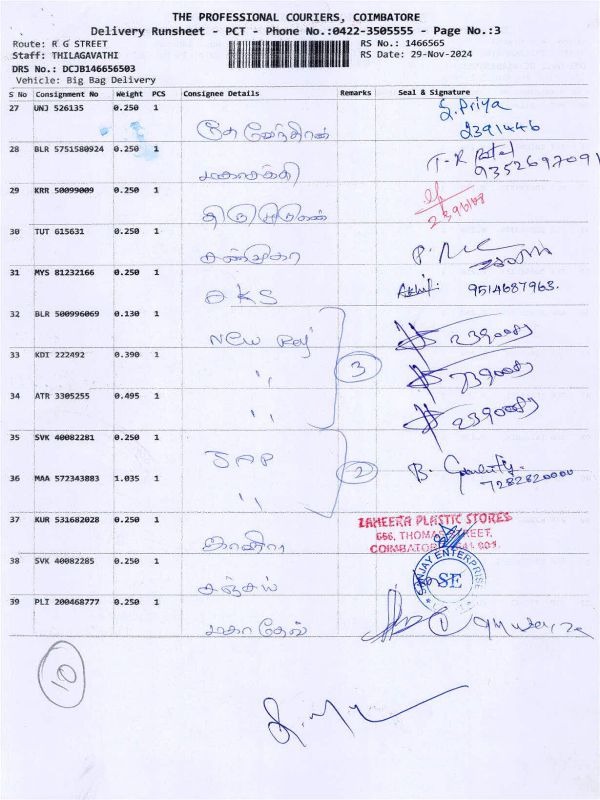 THE PROFESSIONAL COURIERS, COIMBATORE
Delivery Runsheet - PCT - Phone No.:0422-3505555 - Page No.:3
Route: R G STREET
RS No.: 1466565
Staff: THILAGAVATHI
RS Date: 29-Nov-2024
DRS No.: DCJB146656503
Vehicle: Big Bag Delivery
S No Consignment No Weight PCS Consignee Details Remarks Seal & Signature
27 UNJ 526135 0.250 1 S. Priya
2391446
28 BLR 5751580924 0.250 1 T-R Patel
9352697091
மகாசக்தி
29 KRR 50099009 0.250 1
30 TUT 615631 0.250 1
சண்முகா
31 MYS 81232166 0.250 1
AKS 9514687963.
32 BLR 500996069 0.130 1
New Raj 2390089
33 KDI 222492 0.390 1
" 3 2390089
34 ATR 3305255 0.495 1
" 2390089
35 SVK 40082281 0.250 1
JAP 2 B.
7282820000
36 MAA 572343883 1.035 1
"
37 KUR 531682028 0.250 1
ZAHEERA PLASTIC STORES
566, THOMAS STREET,
COIMBATORE - 641 001.
ஜாஹிரா
38 SVK 40082285 0.250 1
SANJAY ENTERPRISE
SE
சஞ்சய்
39 PLI 200468777 0.250 1
மகாதேவ்
10